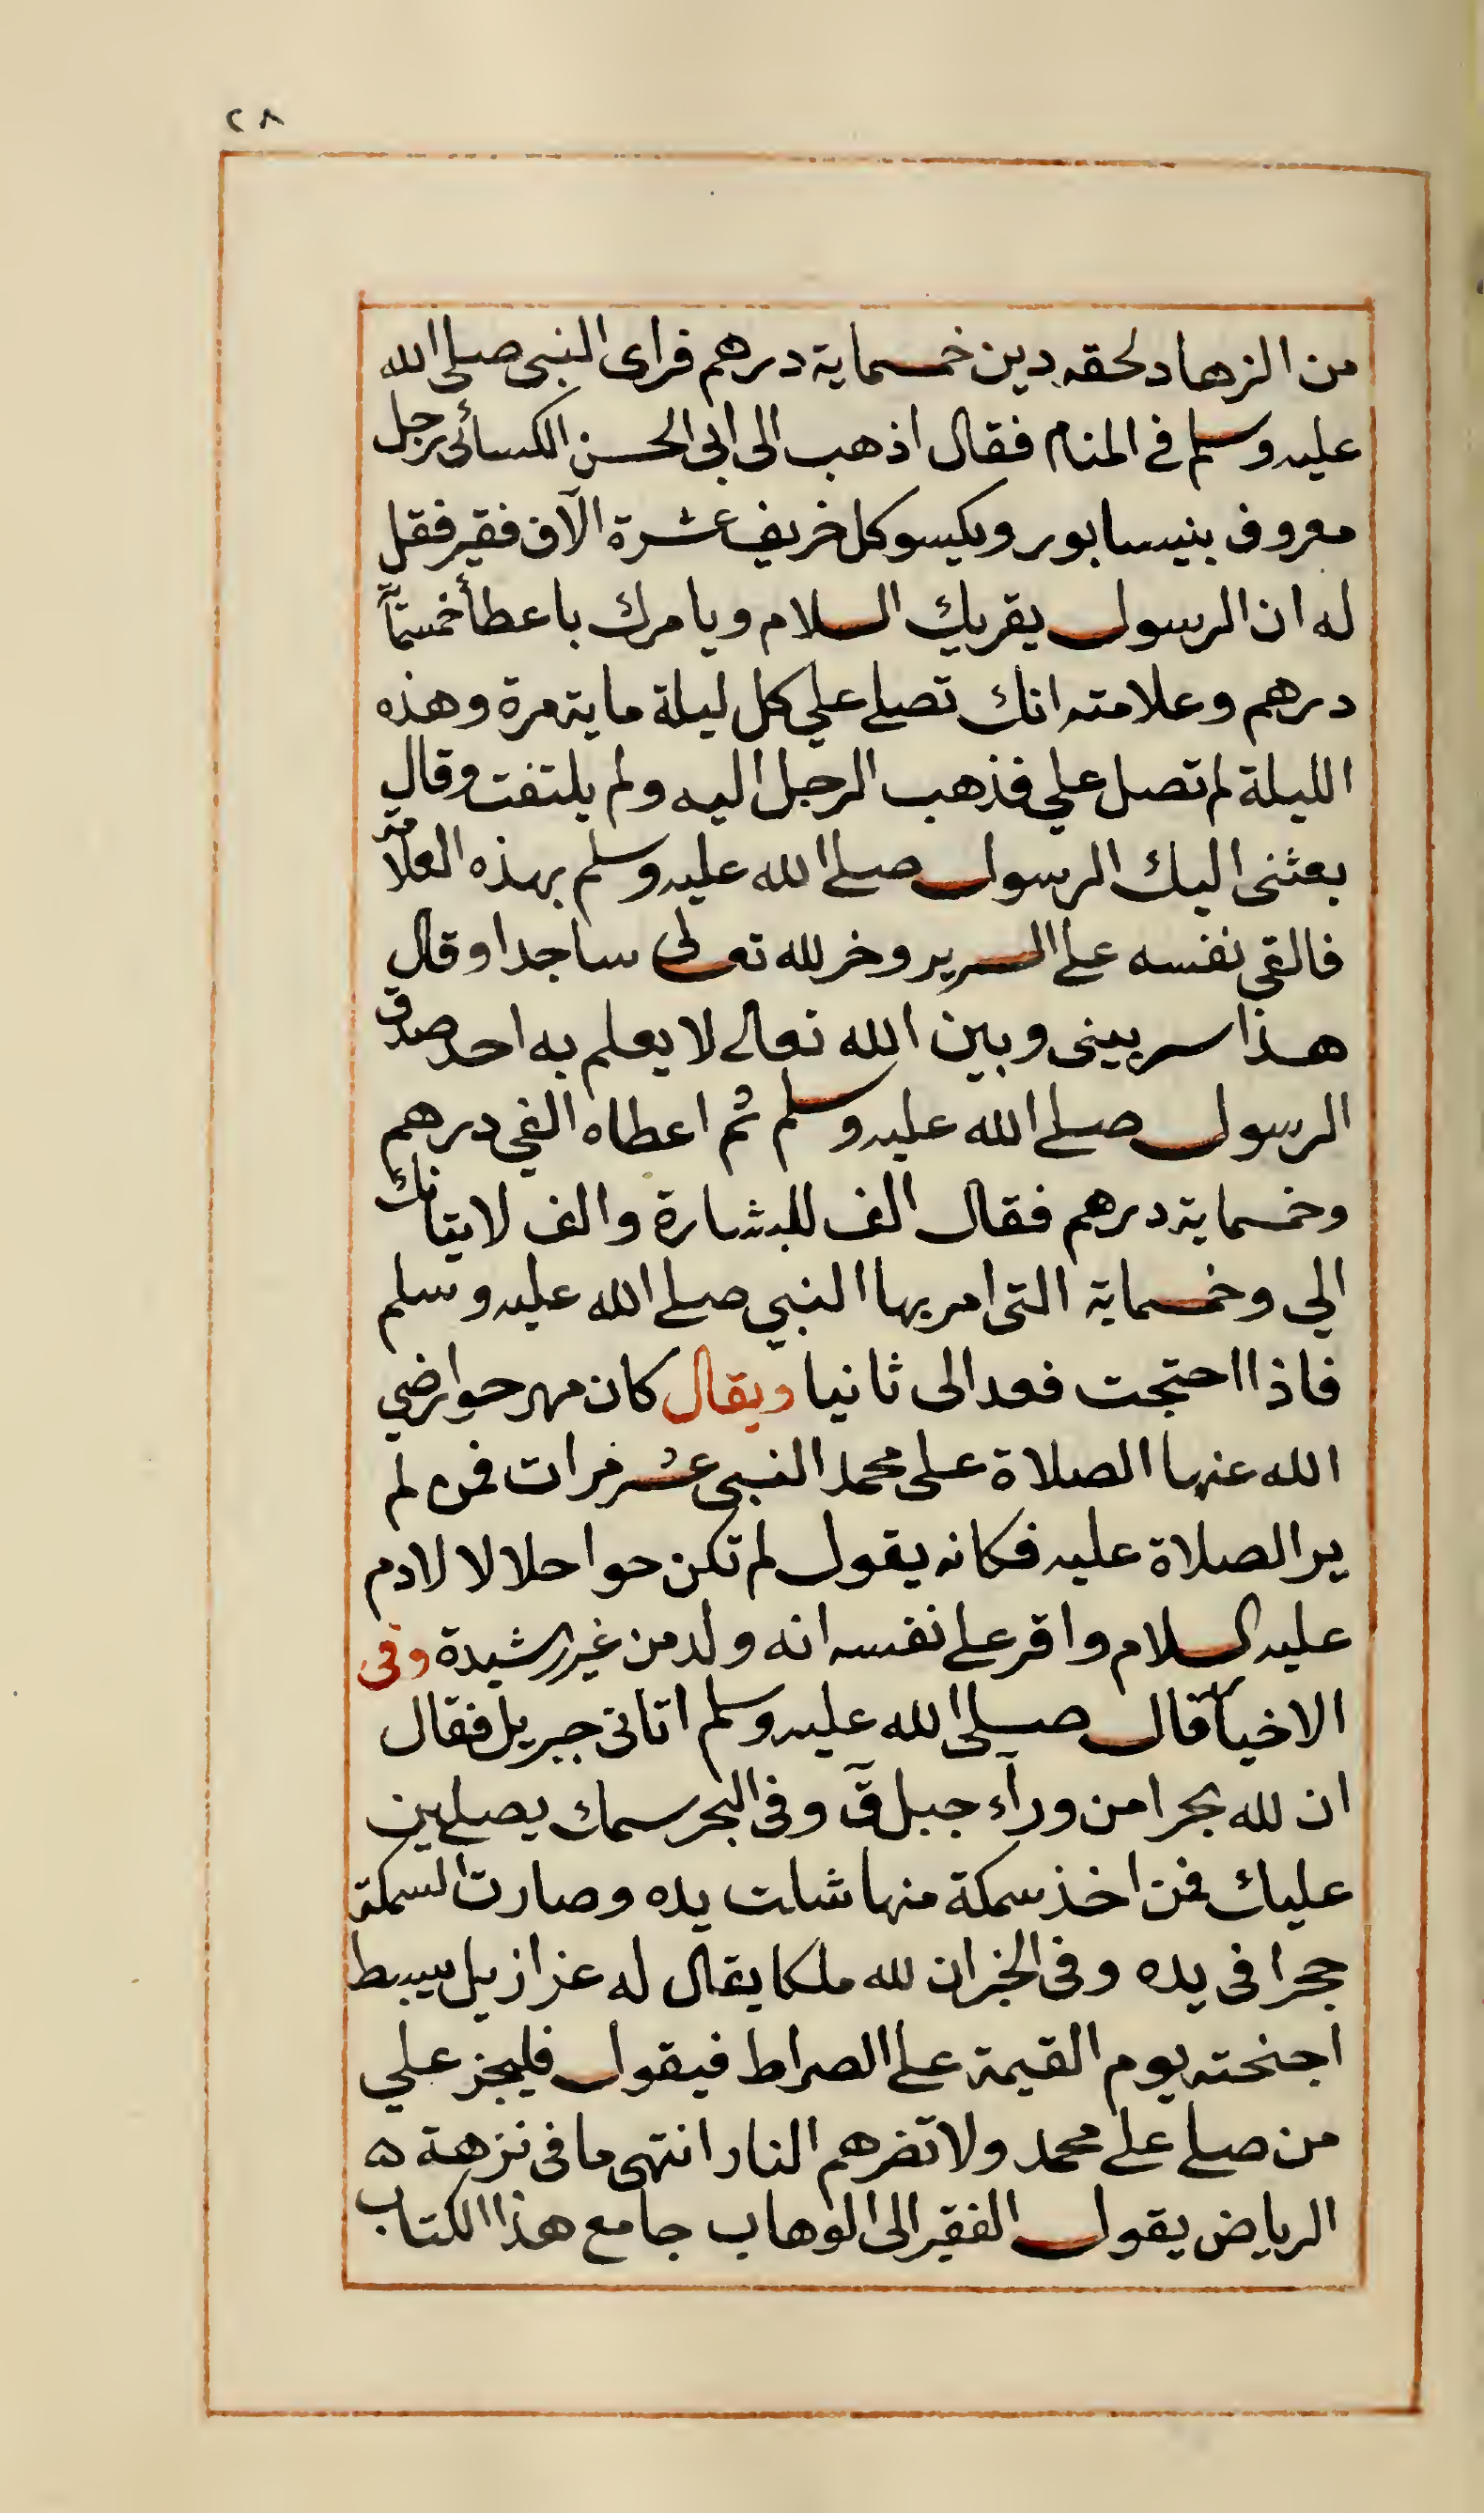 ٢٨
من الزهاد لحقه دين خمسماية درهم فراى النبى صلى الله
عليه وسلم فى المنام فقال اذهب الى ابى الحسن الكسائى رجل
معروف بنيسابور ويكسو كل خريف عشرة الآف فقير فقل
له ان الرسول يقريك السلام ويامرك باعطأ خمسمآية
درهم وعلامته انك تصلى على كل ليلة ماية مرة وهذه
الليلة لم تصل على فذهب الرجل اليه ولم يلتفت وقال
بعثنى اليك الرسول صلى الله عليه وسلم بهذه العلامة
فالقى نفسه على السرير وخر لله تعالى ساجدا وقال
هذا سر بينى وبين الله تعالى لا يعلم به احد صدق
الرسول صلى الله عليه وسلم ثم اعطاه الفى درهم
وخمسماية درهم فقال الف للبشارة والف لايتانك
الي وخمسماية التى امر بها النبي صلى الله عليه وسلم
فاذا احتجت فعد الى ثانيا ويقال كان مهر حوا رضي
الله عنها الصلاة على محمد النبى عشر مرات فمن لم
ير الصلاة عليه فكانه يقول لم تكن حوا حلالا لادم
عليه السلام واقر على نفسه انه ولد من غير رشيدة وفى
الاخبار قال صلى الله عليه وسلم اتانى جبريل فقال
ان لله بحرا من ورآء جبل قۤ وفى البحر سمك يصلين
عليك فمن اخذ سمكة منها شلت يده وصارت السمكة
حجرا فى يده وفى الخبر ان لله ملكا يقال له عزازيل يبسط
اجنحته يوم القيمة على الصراط فيقول فليجز علي
من صلى على محمد ولا تضرهم النار انتهى ما فى نزهة ه
الرياض يقول الفقير الى الوهاب جامع هذا الكتاب